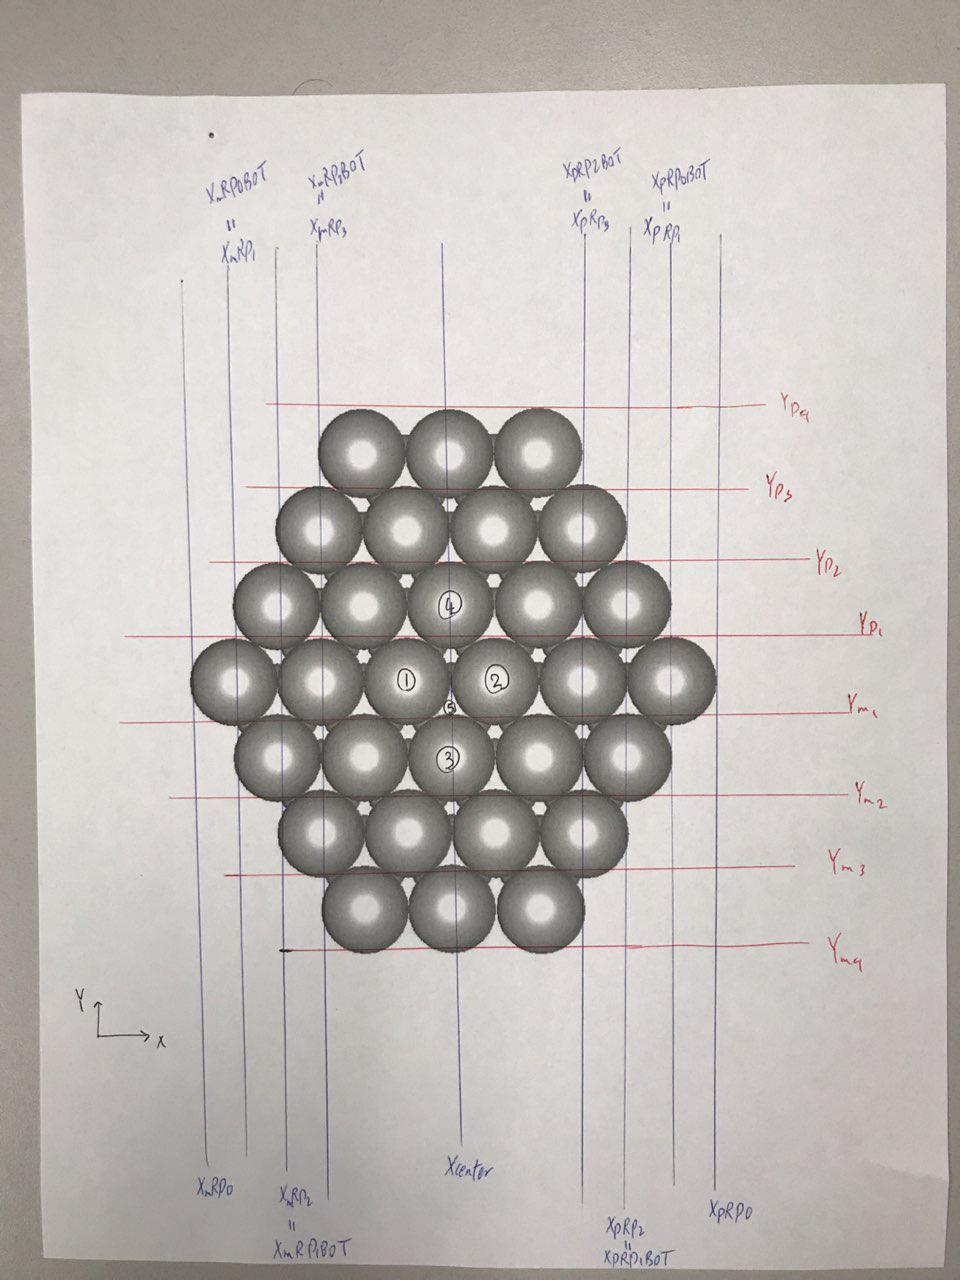 XmRP0BOT
=
XmRP1
XmRP2BOT
=
XmRP3
XpRP2BOT
=
XpRP3
XpRP0BOT
=
XpRP1
Yp4
Yp3
Yp2
4
Yp1
1
2
5
Ym1
3
Ym2
Ym3
Ym4
Y
X
XmRP0
XmRP2
=
XmRP1BOT
Xcenter
XpRP2
=
XpRP1BOT
XpRP0